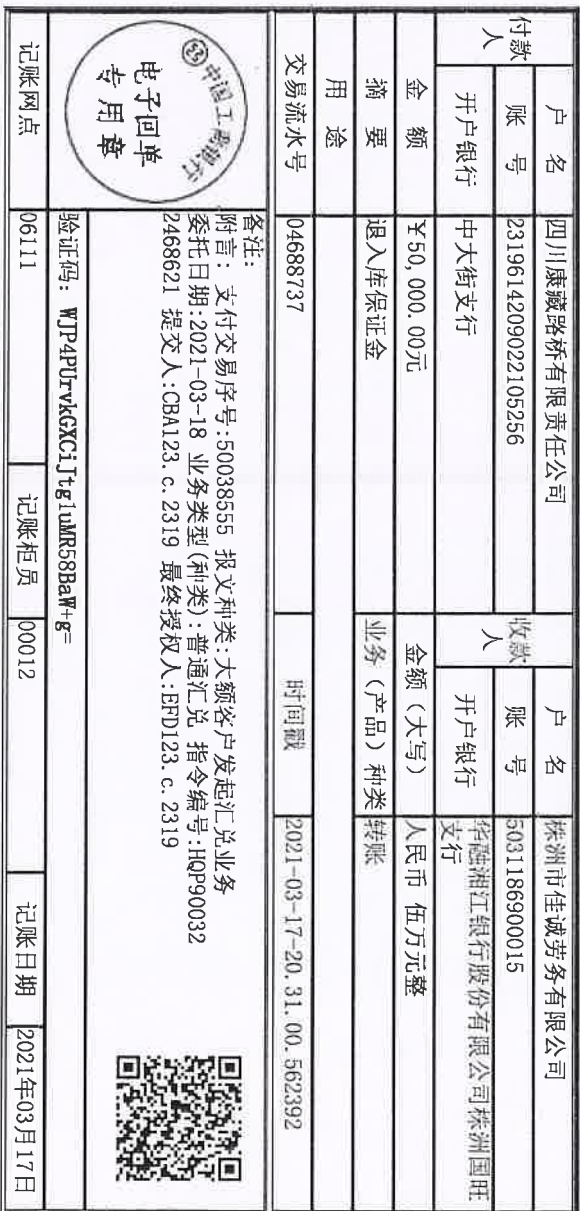 付款人 户 名 四川康藏路桥有限责任公司 收款人 户 名 株洲市佳诚劳务有限公司
账 号 2319614209022105256 账 号 5031186900015
开户银行 中大街支行 开户银行 华融湘江银行股份有限公司株洲国旺
支行
金 额 ¥50,000.00元 金额（大写） 人民币 伍万元整
摘 要 退入库保证金 业务（产品）种类 转账
用 途
交易流水号 04688737 时间戳 2021-03-17-20.31.00.562392
备注：
附言：支付交易序号:50038555 报文种类:大额客户发起汇兑业务
委托日期:2021-03-18 业务类型(种类):普通汇兑 指令编号:HQP90032
2468621 提交人:CBA123.c.2319 最终授权人:EFD123.c.2319
中国工商银行
电子回单
专用章
验证码：WJP4PUrvkGXCiJtg1uMR58BaW+g=
记账网点 06111 记账柜员 00012 记账日期 2021年03月17日